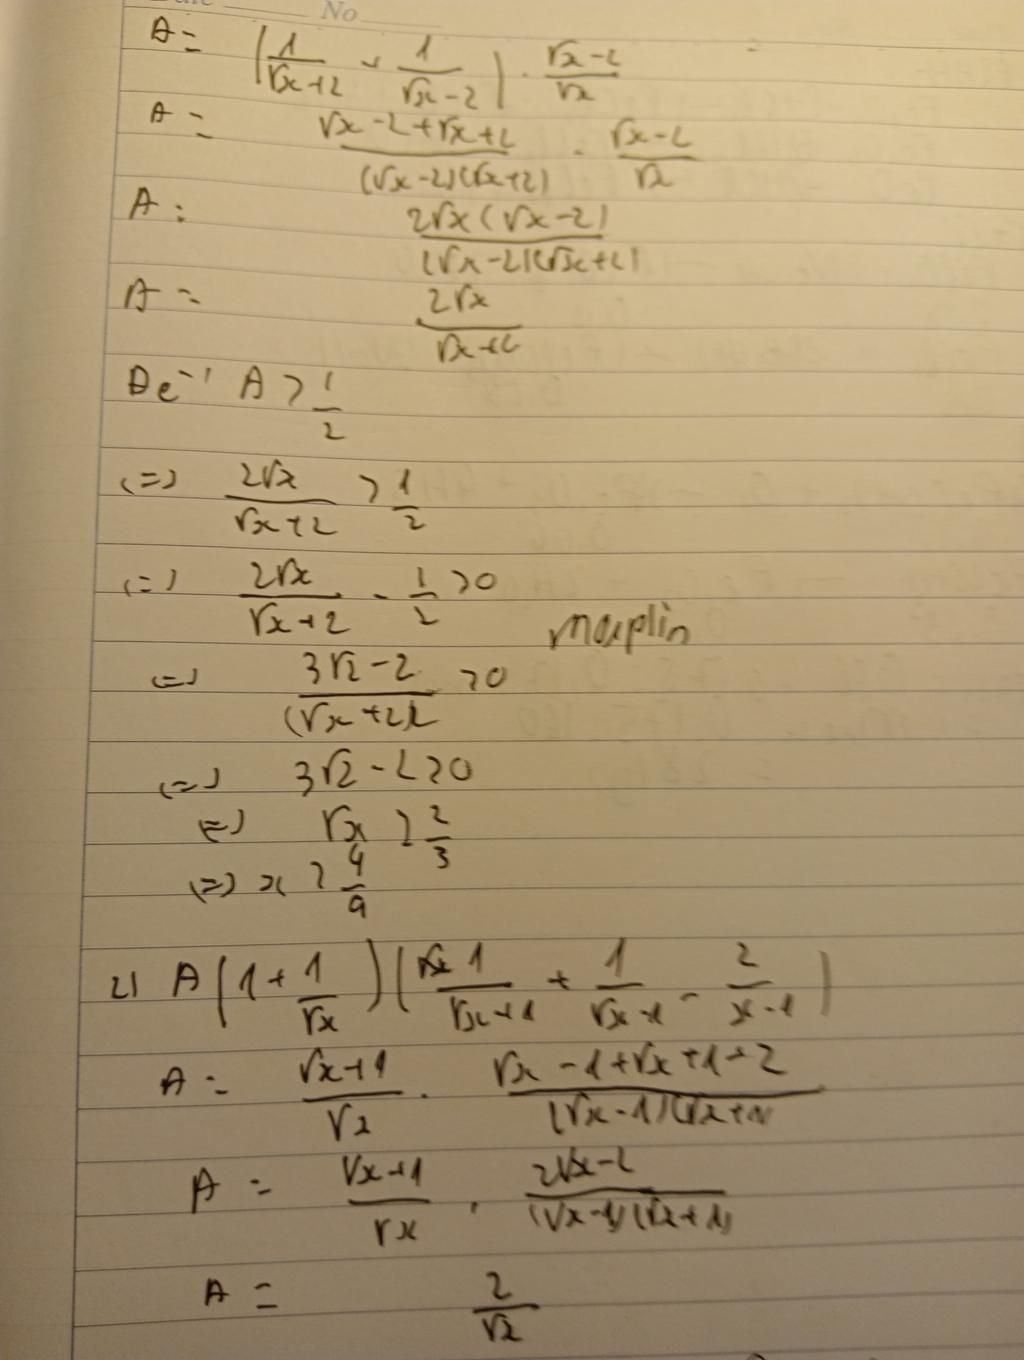 No
A = (1/(√x+2) + 1/(√x-2)) . (√x-2)/√x
A = (√x-2+√x+2)/((√x-2)(√x+2)) . (√x-2)/√x
A = 2√x(√x-2)/((√x-2)(√x+2))
A = 2√x/(√x+2)
Để A > 1/2
(=) 2√x/(√x+2) > 1/2
(=) 2√x/(√x+2) - 1/2 >0
(=) (3√x-2)/((√x+2)2 >0
(=) 3√x-2>0
(=) √x > 2/3
(=) x > 4/9
2) A (1+1/√x)(1/(√x+1) + 1/(√x-1) - 2/(x-1))
A = (√x+1)/√x . (√x-1+√x+1-2)/((√x-1)(√x+1)
A = (√x+1)/√x . (2√x-2)/((√x-1)(√x+1)
A = 2/√x